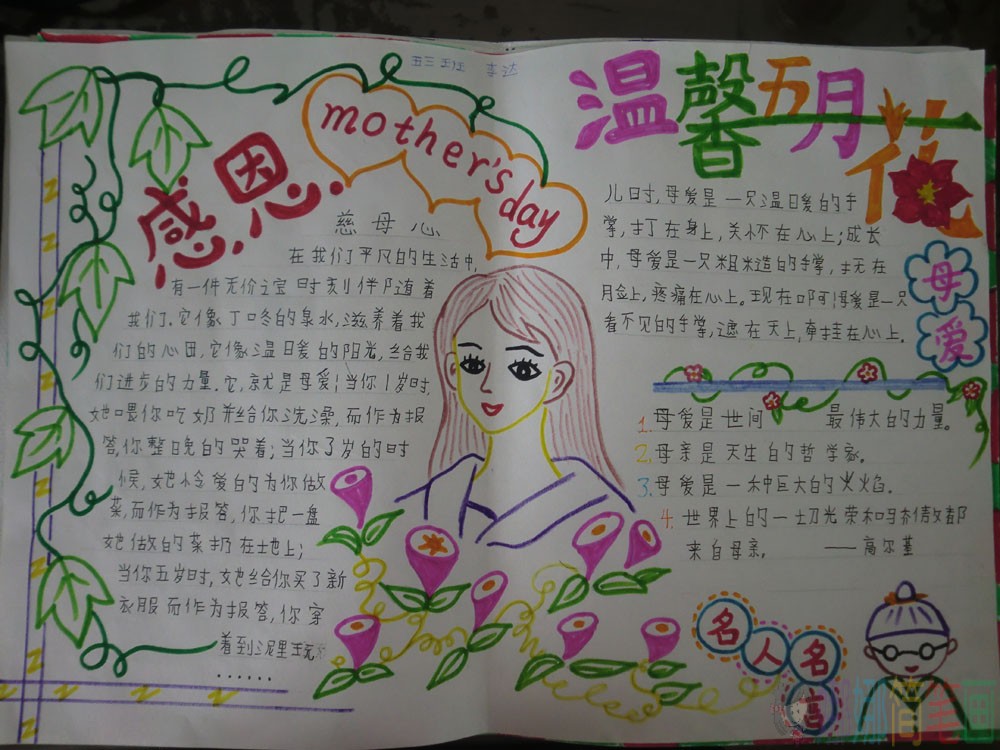 五三班 李达
感恩
mother's day
慈母心
在我们平凡的生活中,
有一件无价之宝时刻伴随着
我们.它像丁咚的泉水,滋养着我
们的心田,它像温暖的阳光,给我
们进步的力量.它,就是母爱!当你1岁时.
她喂你吃奶并给你洗澡,而作为报
答,你整晚的哭着;当你了岁的时
候,她怜爱的为你做
菜,而作为报答,你把一盘
她做的菜扔在地上;
当你五岁时,她给你买了新
衣服而作为报答,你穿
着到泥里玩
......
温馨五月花
儿时,母爱是一只温暖的手
掌,打在身上,关怀在心上;成长
中,母爱是一只粗糙的手掌,
月佥上,疼痛在心上。现在 母爱是一只
看不见的手掌,遮在天上,牵挂在心上。
母爱
1.母爱是世间 最伟大的力量。
2.母亲是天生的哲学家。
3.母爱是一种巨大的火焰。
4.世界上的一切光荣和骄傲都
来自母亲。 ——高尔基
名人名言
简笔画